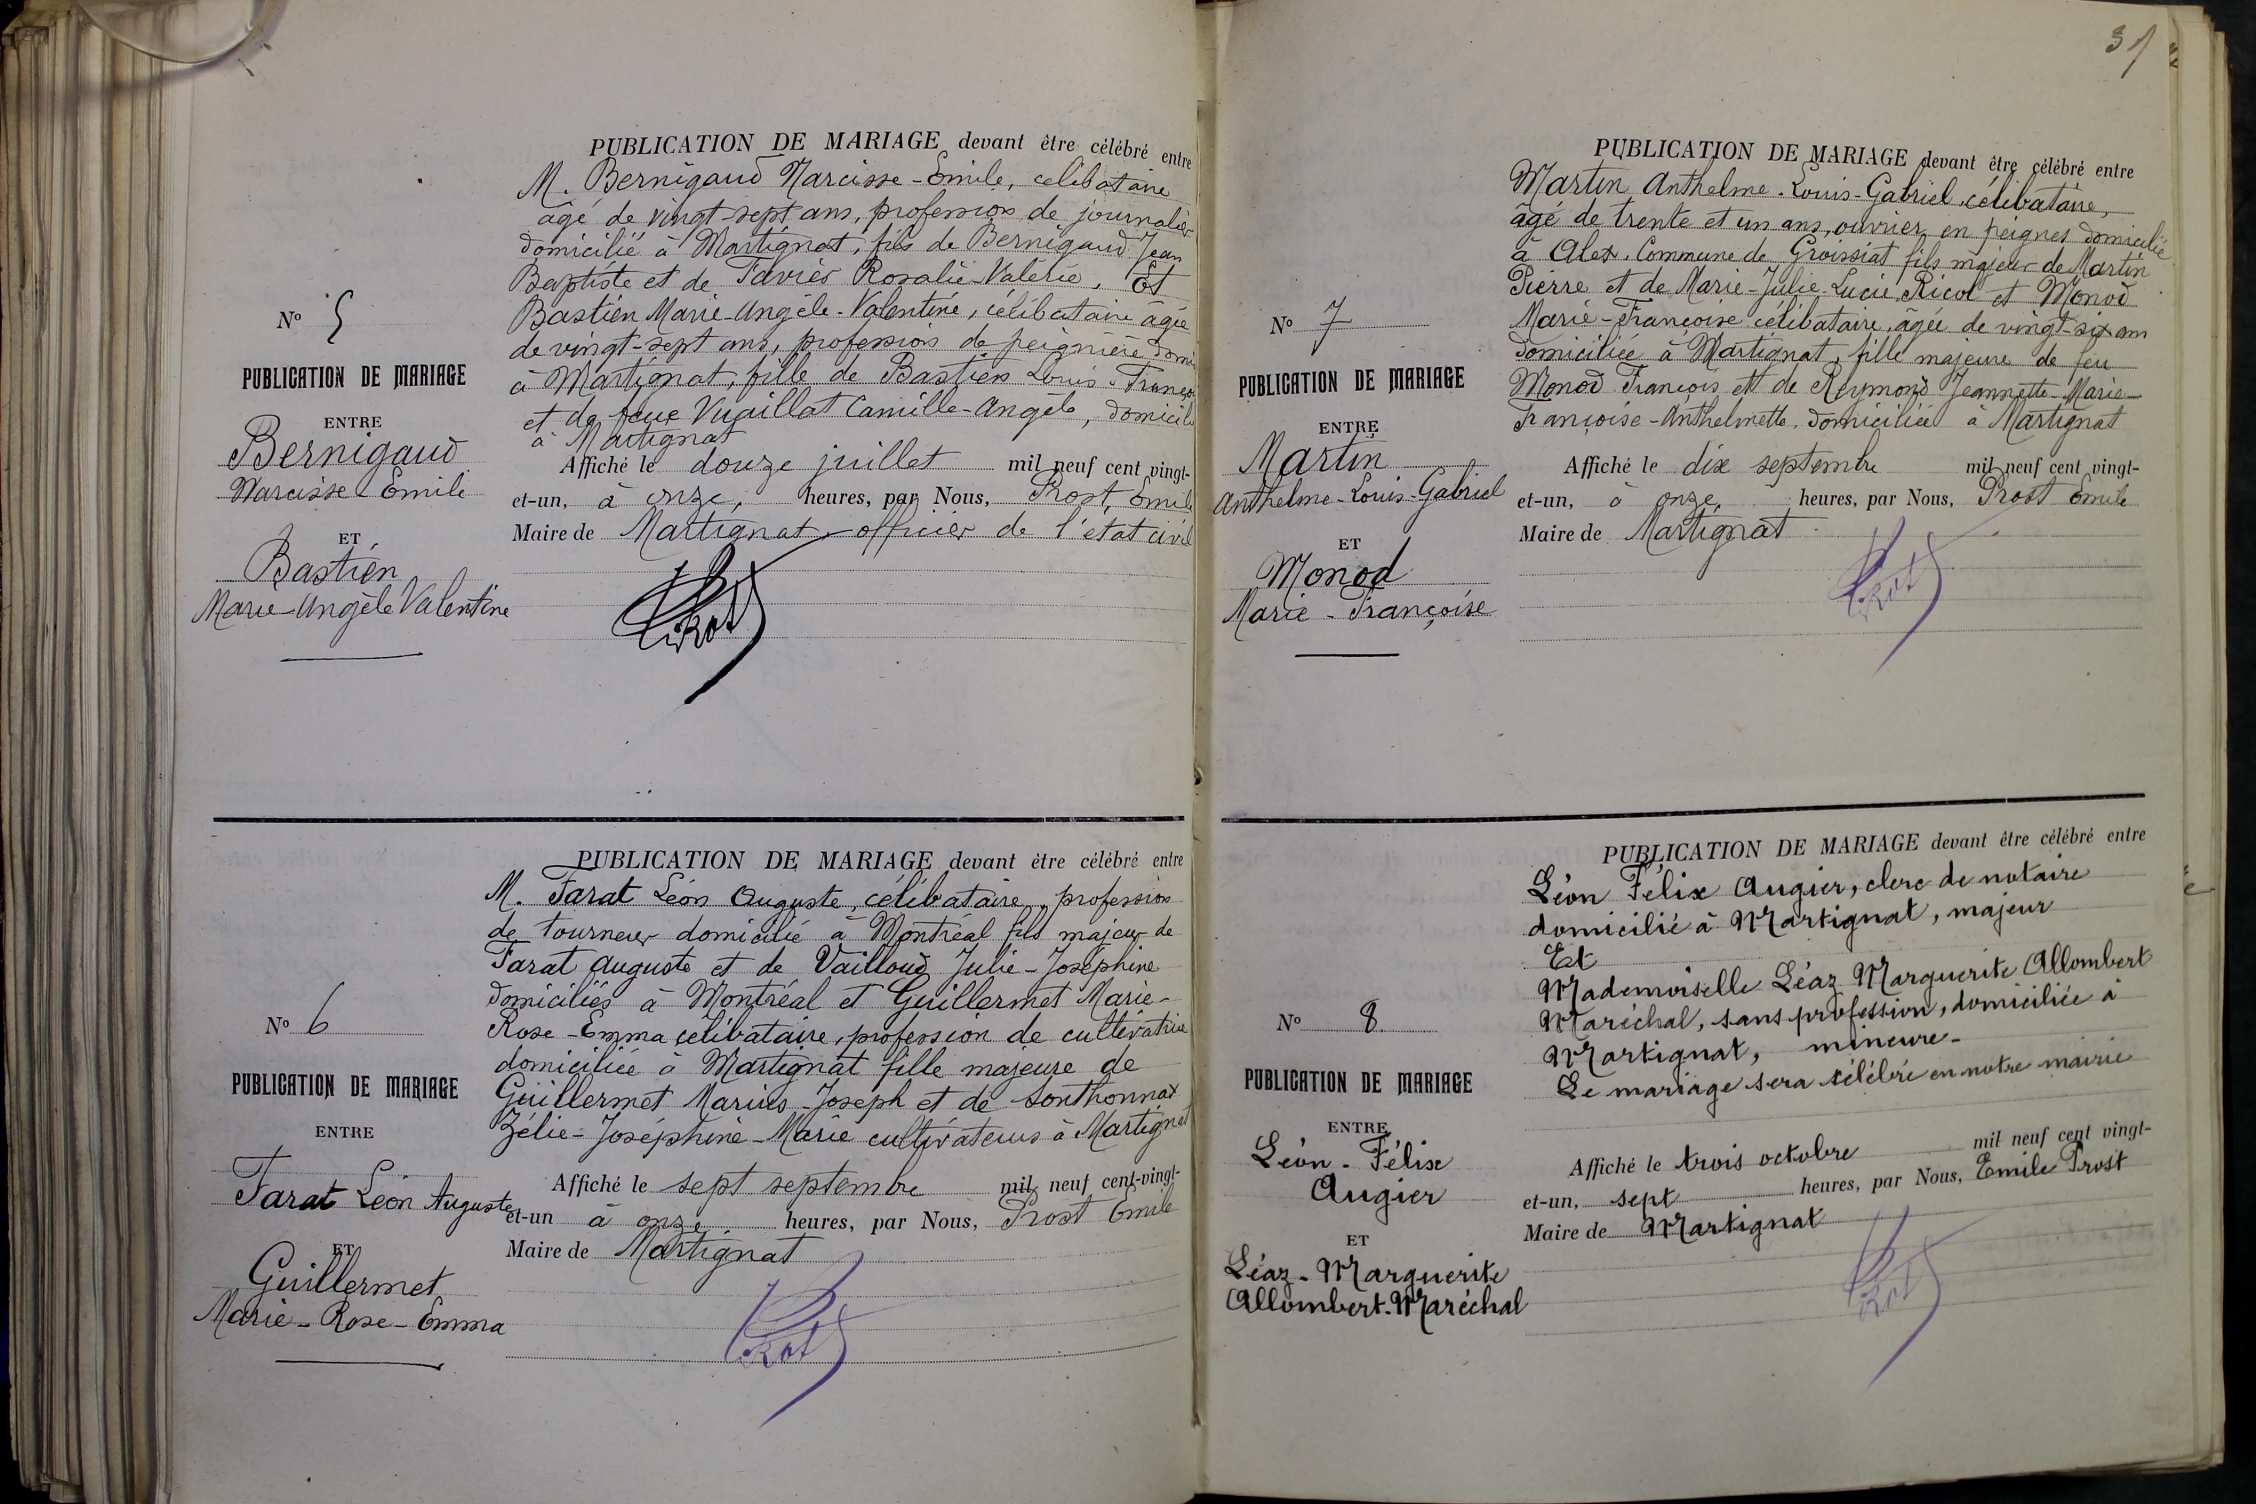 N° 5
PUBLICATION DE MARIAGE
ENTRE
Bernigaud
Narcisse-Emile
ET
Bastien
Marie-Angèle Valentine
PUBLICATION DE MARIAGE devant être célébré entre
M. Bernigaud Narcisse-Emile, célibataire
âgé de vingt-sept ans, profession de journalier
domicilié à Martignat, fils de Bernigaud Jean
Baptiste et de Favier Rosalie-Valérie, Et
Bastien Marie-Angèle-Valentine, célibataire âgée
de vingt-sept ans, profession de peignière domi
à Martignat, fille de Bastien Louis-Franço
et de feue Vuaillat Camille-Angèle, domicil
à Martignat
Affiché le douze juillet mil neuf cent vingt-
et-un, à onze, heures, par Nous, Prost, Emile
Maire de Martignat officier de l'état civil
Prost
N° 6
PUBLICATION DE MARIAGE
ENTRE
Farat Léon Auguste
ET
Guillermet
Marie-Rose-Emma
PUBLICATION DE MARIAGE devant être célébré entre
M. Farat Léon Auguste, célibataire, profession
de tourneur domicilié à Montréal fils majeur de
Farat Auguste et de Vailloud Julie-Joséphine
domiciliés à Montréal et Guillermet Marie-
Rose-Emma célibataire, profession de cultivatrice
domiciliée à Martignat fille majeure de
Guillermet Marius-Joseph et de Sonthonnax
Zélie-Joséphine-Marie cultivateurs à Martignat
Affiché le sept septembre mil neuf cent-vingt-
et-un à onze heures, par Nous, Prost Emile
Maire de Martignat
Prost
37
N° 7
PUBLICATION DE MARIAGE
ENTRE
Martin
Anthelme-Louis-Gabriel
ET
Monod
Marie-Françoise
PUBLICATION DE MARIAGE devant être célébré entre
Martin Anthelme-Louis-Gabriel, célibataire,
âgé de trente et un ans, ouvrier en peignes domicilié
à Alex, Commune de Groissiat fils majeur de Martin
Pierre et de Marie-Julie-Lucie Ricol et Monod
Marie-Françoise célibataire, âgée de vingt-six ans
domiciliée à Martignat, fille majeure de feu
Monod François et de Reymond Jeannette-Marie-
Françoise-Anthelmette, domiciliée à Martignat
Affiché le dix septembre mil neuf cent vingt-
et-un, à onze, heures, par Nous, Prost Emile
Maire de Martignat
Prost
N° 8
PUBLICATION DE MARIAGE
ENTRE
Léon-Félix
Augier
ET
Léaz-Marguerite
Allombert-Maréchal
PUBLICATION DE MARIAGE devant être célébré entre
Léon Félix Augier, clerc de notaire
domicilié à Martignat, majeur
Et
Mademoiselle Léaz Marguerite Allombert
Maréchal, sans profession, domiciliée à
Martignat, mineure-
Le mariage sera célébré en notre mairie
Affiché le trois octobre mil neuf cent vingt-
et-un, sept heures, par Nous, Emile Prost
Maire de Martignat
Prost